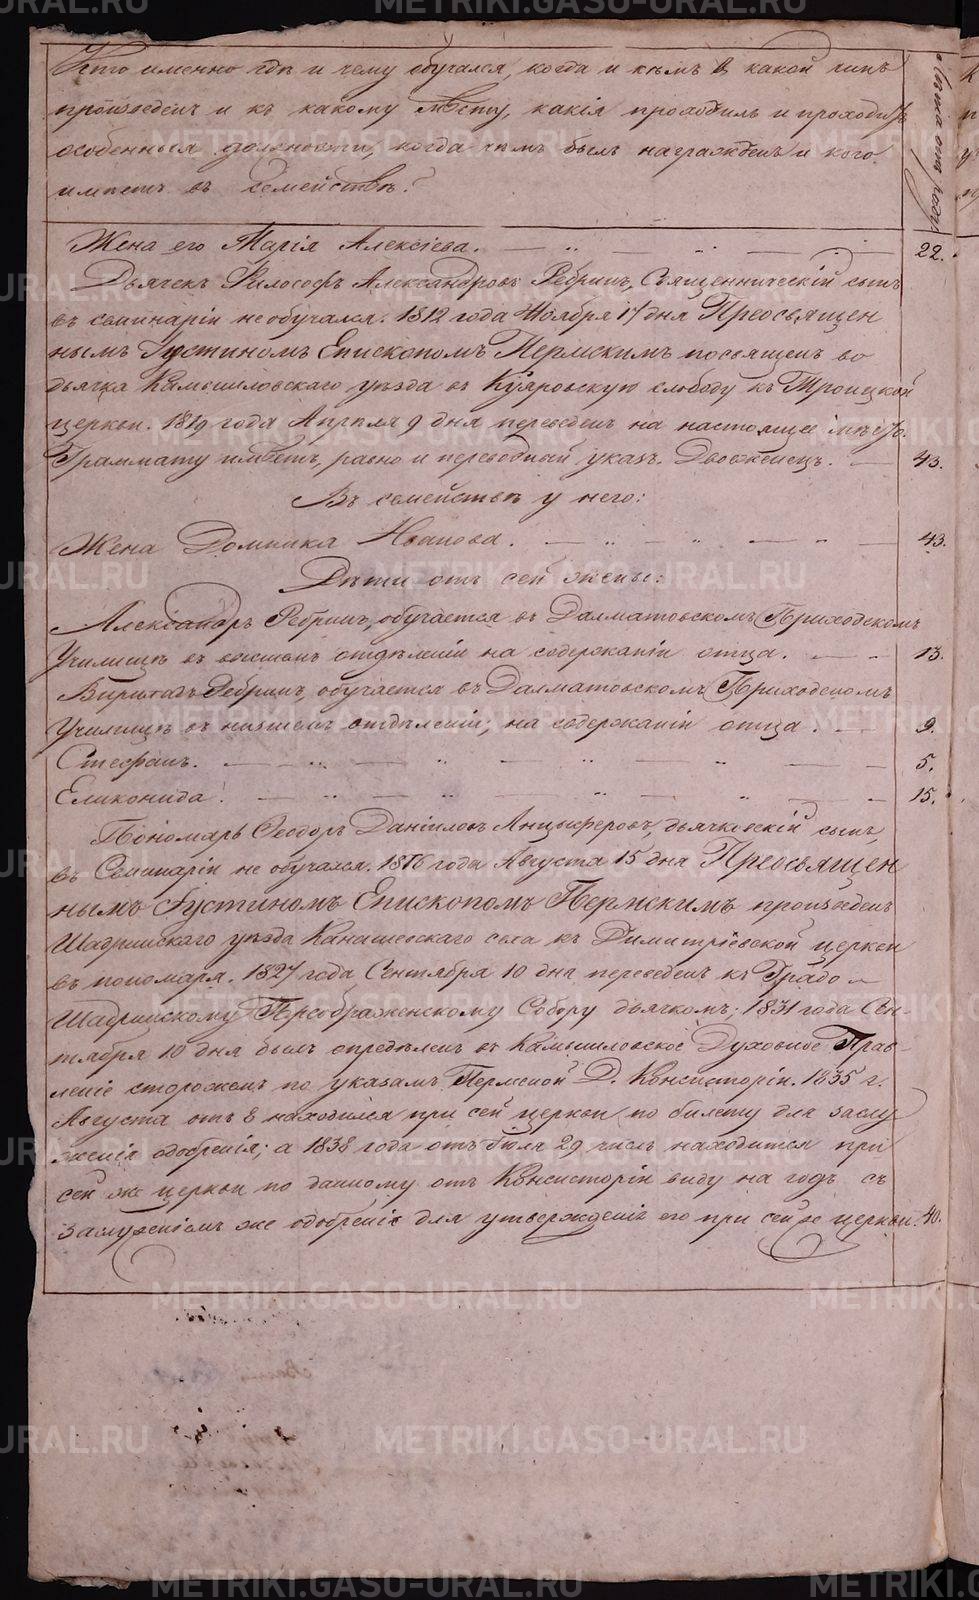 Кто именно где и чему обучался, когда и кѣмъ въ какой чинъ
произведенъ и къ какому мѣсту, какія проходилъ и проходитъ
особенныя должности, когда чѣмъ былъ награжденъ и кого
имѣетъ въ семействѣ?
Жена его Марія Алексіева. 22.
Дьячекъ Философъ Александровъ Ребринъ, Священническій сынъ
въ семинаріи не обучался. 1812 года Ноября 17 дня Преосвящен
нымъ Іустиномъ Епископомъ Пермскимъ посвященъ во
дьячка Камышловскаго уѣзда въ Куяровскую слободу къ Троицкой
церкви. 1819 года Апрѣля 9 дня переведенъ на настоящее мѣсто.
Граммату имѣетъ, равно и переводный указъ. Двоеженецъ. 43.
Въ семействѣ у него:
Жена Домника Иванова. 43.
Дѣти отъ сей жены:
Александръ Ребринъ, обучается въ Далматовскомъ Приходскомъ
Училищѣ въ высшемъ отдѣленіи на содержаніи отца. 13.
Ребринъ, обучается въ Далматовскомъ Приходскомъ
Училищѣ въ низшемъ отдѣленіи, на содержаніи отца. 9.
Стефанъ. 5.
Еликонида. 15.
Пономарь Ѳеодоръ Даніиловъ Анцыферовъ, дьячковскій сынъ,
въ Семинаріи не обучался. 1816 года Августа 15 дня Преосвящен
нымъ Іустиномъ Епископомъ Пермскимъ произведенъ
Шадринскаго уѣзда Канашевскаго села къ Димитріевской церкви
въ пономаря. 1827 года Сентября 10 дня переведенъ къ Градо
Шадринскому Преображенскому Собору дьячкомъ; 1831 года Сен-
тября 10 дня былъ опредѣленъ въ Камышловское Духовное Прав-
леніе сторожемъ по указамъ Пермской Д. Консисторіи. 1835 г.
Августа отъ 8 находился при сей церкви по билету для заслу
женія одобренія; а 1838 года отъ Іюля 29 числъ находится при
сей же церкви по данному отъ Консисторіи виду на годъ съ
заслуженіемъ же одобренія для утвержденія его при сей же церкви. 40.
METRIKI.GASO-URAL.RU